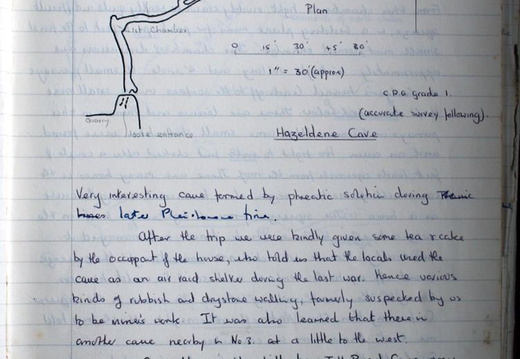 Plan
1st Chamber
0 15' 30' 45' 60'
1" = 30' (approx)
C.R.G. grade 1.
(accurate survey following).
Quarry
loose entrance
Hazeldene Cave
Very interesting cave formed by phreatic solution during
late Pleistocene time.
After the trip we were kindly given some tea & cake
by the occupant of the house, who told us that the locals used the
cave as an air raid shelter during the last war. Hence various
kinds of rubbish and drystone walling, formerly suspected by us
to be miner's work. It was also learned that there is
another cave nearby in No 3. at a little to the west.